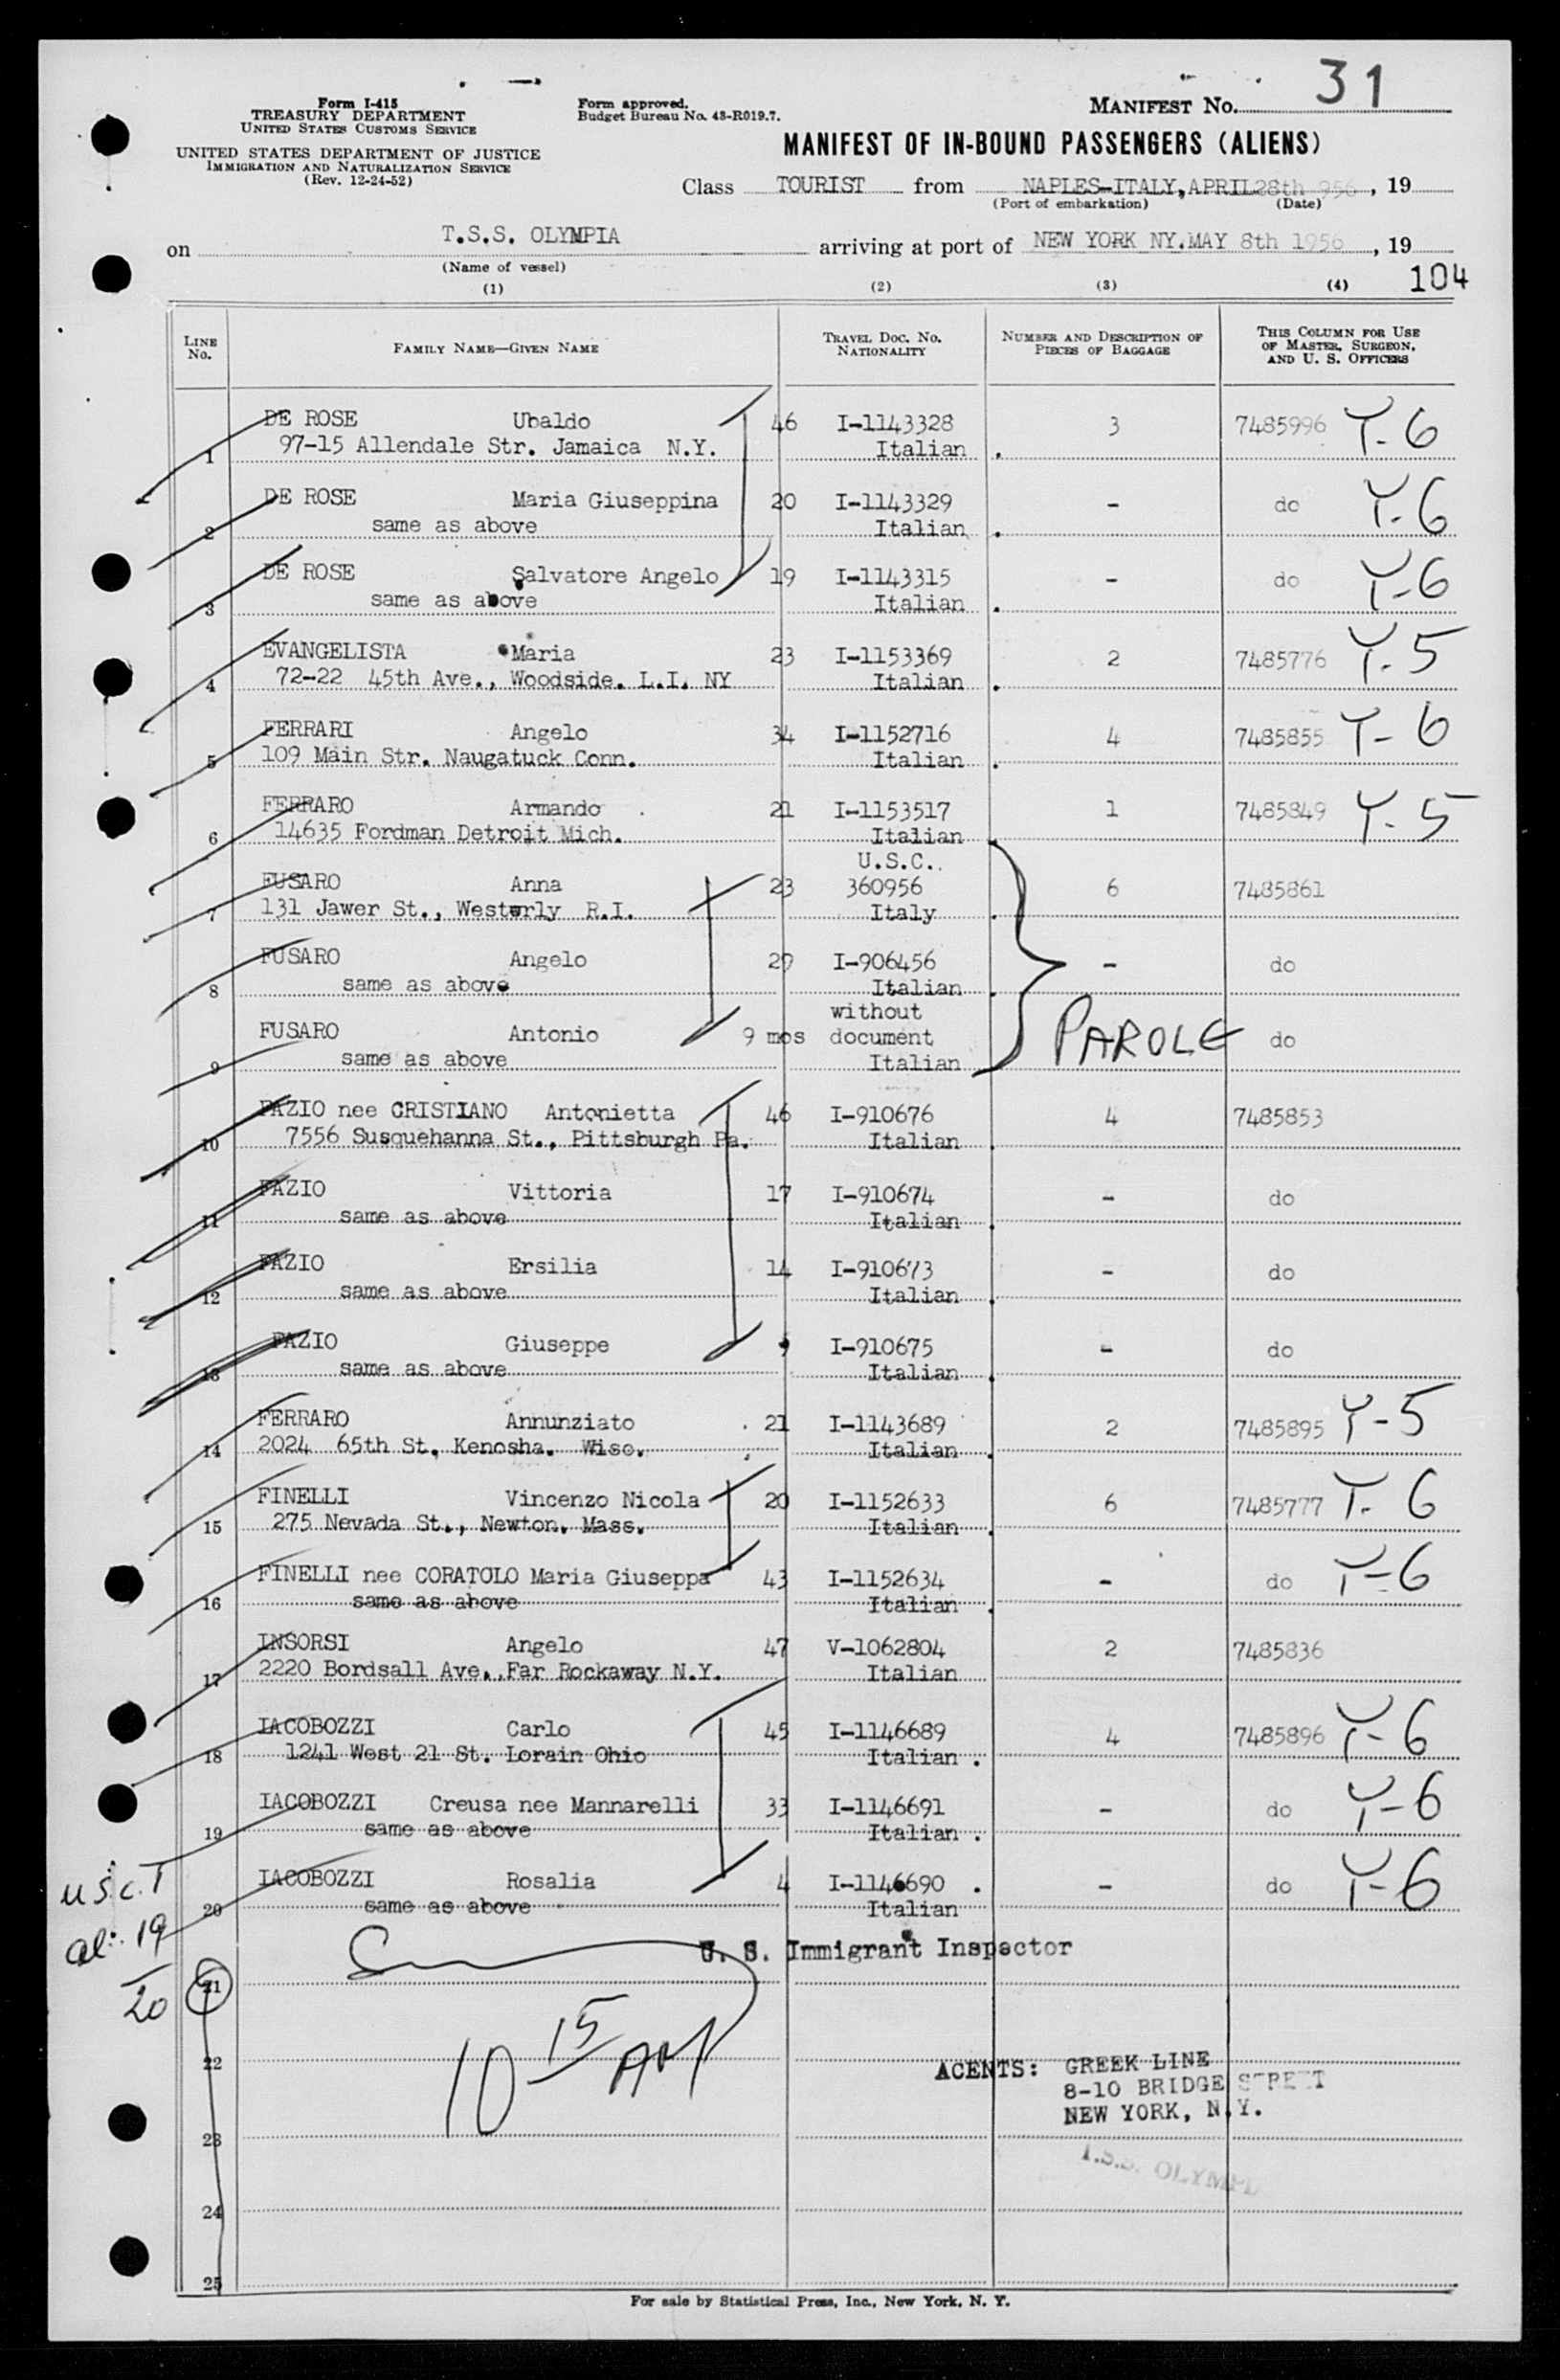 31
Form I-415
TREASURY DEPARTMENT
UNITED STATES CUSTOMS SERVICE
UNITED STATES DEPARTMENT OF JUSTICE
IMMIGRATION AND NATURALIZATION SERVICE
(Rev. 12-24-52)
Form approved.
Budget Bureau No. 43-R019.7.
MANIFEST No.
MANIFEST OF IN-BOUND PASSENGERS (ALIENS)
Class TOURIST from NAPLES-ITALY, APRIL 28th 956, 19
(Port of embarkation) (Date)
on T.S.S. OLYMPIA arriving at port of NEW YORK NY. MAY 8th 1956, 19
(Name of vessel)
(1) (2) (3) (4) 104
LINE No. FAMILY NAME—GIVEN NAME TRAVEL DOC. No. NATIONALITY NUMBER AND DESCRIPTION OF PIECES OF BAGGAGE THIS COLUMN FOR USE OF MASTER, SURGEON, AND U. S. OFFICERS
DE ROSE Ubaldo 46 I-1143328 3 7485996 Y-6
1 97-15 Allendale Str. Jamaica N.Y. Italian .
DE ROSE Maria Giuseppina 20 I-1143329 - do Y-6
2 same as above Italian .
DE ROSE Salvatore Angelo 19 I-1143315 - do Y-6
3 same as above Italian .
EVANGELISTA Maria 23 I-1153369 2 7485776 Y-5
4 72-22 45th Ave., Woodside. L.I. NY Italian .
FERRARI Angelo 34 I-1152716 4 7485855 Y-6
5 109 Main Str. Naugatuck Conn. Italian .
FERRARO Armando 21 I-1153517 1 7485849 Y-5
6 14635 Fordman Detroit Mich. Italian .
U.S.C..
FUSARO Anna 23 360956 6 7485861
7 131 Jawer St., Westerly R.I. Italy .
FUSARO Angelo 29 I-906456 - do
8 same as above Italian .
without
FUSARO Antonio 9 mos document PAROLE do
9 same as above Italian
FAZIO nee CRISTIANO Antonietta 46 I-910676 4 7485853
10 7556 Susquehanna St., Pittsburgh Pa. Italian .
FAZIO Vittoria 17 I-910674 - do
11 same as above Italian .
FAZIO Ersilia 14 I-910673 - do
12 same as above Italian .
FAZIO Giuseppe 9 I-910675 - do
13 same as above Italian .
FERRARO Annunziato 21 I-1143689 2 7485895 Y-5
14 2024 65th St. Kenosha. Wisc. Italian .
FINELLI Vincenzo Nicola 20 I-1152633 6 7485777 Y-6
15 275 Nevada St., Newton. Mass. Italian .
FINELLI nee CORATOLO Maria Giuseppa 43 I-1152634 - do Y-6
16 same as above Italian .
INSORSI Angelo 47 V-1062804 2 7485836
17 2220 Bordsall Ave., Far Rockaway N.Y. Italian
IACOBOZZI Carlo 45 I-1146689 4 7485896 Y-6
18 1241 West 21 St. Lorain Ohio Italian .
IACOBOZZI Creusa nee Mannarelli 33 I-1146691 - do Y-6
19 same as above Italian .
IACOBOZZI Rosalia 4 I-1146690 . - do Y-6
20 same as above Italian
U.S.C. 1
al: 19
20
U. S. Immigrant Inspector
21
10 15 AM
22
AGENTS: GREEK LINE
8-10 BRIDGE STREET
NEW YORK, N.Y.
23
T.S.S. OLYMPI
24
25
For sale by Statistical Press, Inc., New York, N. Y.